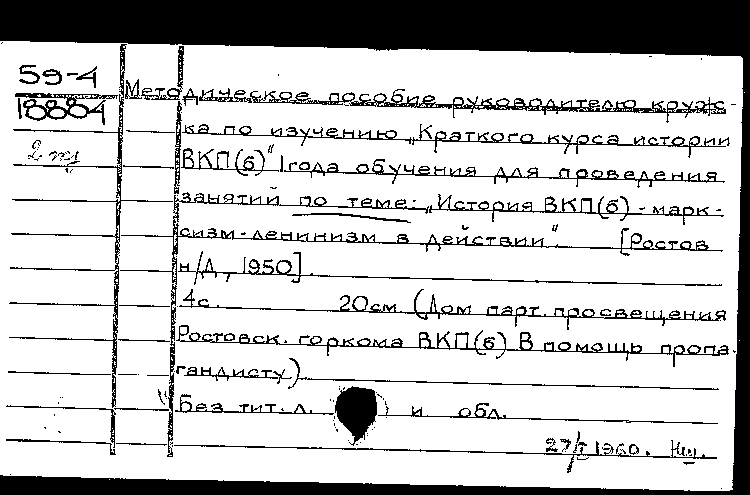 59-4
18884
2 тт
Методическое пособие руководителю круж-
ка по изучению „Краткого курса истории
ВКП(б)" I года обучения для проведения
занятий по теме: „История ВКП(б) - марк-
сизм-ленинизм в действии". [Ростов
н/Д, 1950].
4с. 20см. (Дом парт. просвещения
Ростовск. горкома ВКП(б) В помощь пропа-
гандисту)
Без тит. л. и обл.
27/I 1960.